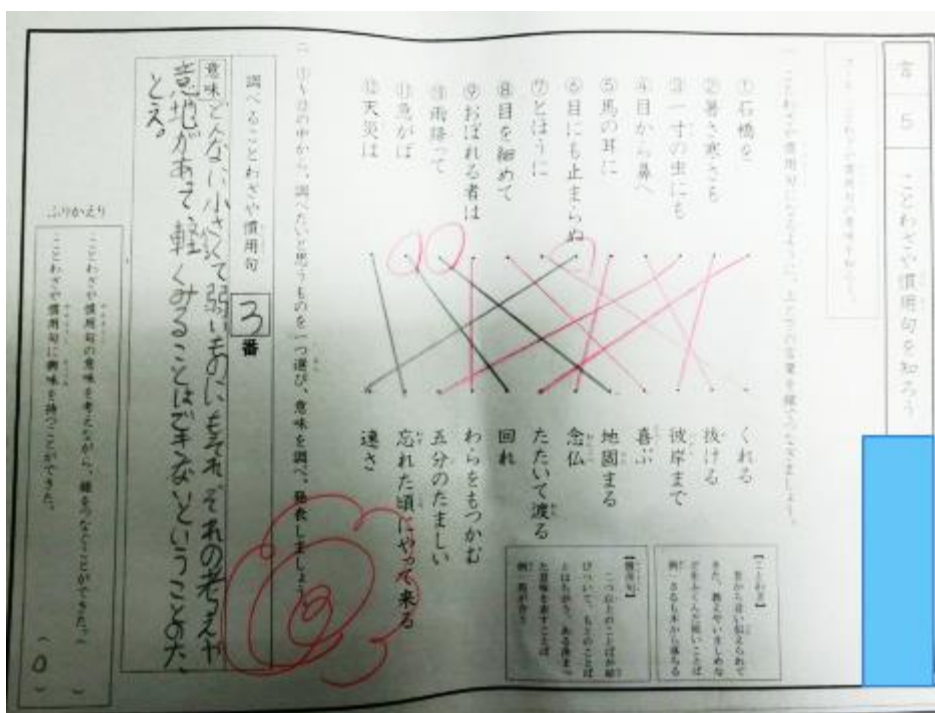 言
5
ことわざや慣用句を知ろう
一 ことわざや慣用句になるように、上と下の言葉を線でつなぎましょう。
①石橋を
②暑さ寒さも
③一寸の虫にも
④目から鼻へ
⑤馬の耳に
⑥目にも止まらぬ
⑦とほうに
⑧目を細めて
⑨おぼれる者は
⑩雨降って
⑪急がば
⑫天災は
くれる
抜ける
彼岸まで
喜ぶ
地固まる
念仏
たたいて渡る
回れ
わらをもつかむ
五分のたましい
忘れた頃にやって来る
速さ
【ことわざ】
昔から言い伝えられて
きた、教えやいましめな
どをふくんだ短いことば
例 さるも木から落ちる
【慣用句】
二つ以上のことばが結
びついて、もとのことば
とはちがう、ある決まっ
た意味を表すことば
二 ①～⑫の中から、調べたいと思うものを一つ選び、意味を調べ、発表しましょう。
調べることわざや慣用句
3番
意味
どんなに小さくて弱いものにもそれぞれの考えや
意地があって、軽くみることはできないということのた
とえ。
ふりかえり
ことわざや慣用句の意味を考えながら、線をつなぐことができた。
ことわざや慣用句に興味を持つことができた。